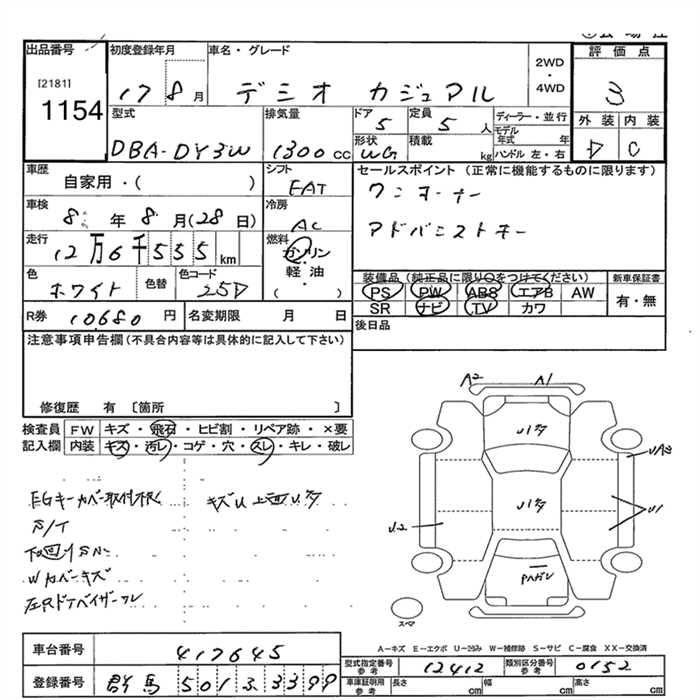 出品番号
[2181]
1154
初度登録年月
17 8月
車名・グレード
デミオ カジュアル
2WD
・
4WD
評価点
3
外装 内装
D C
型式
DBA-DY3W
排気量
1300 CC
ドア
5
形状
WG
定員
5人
積載
kg
ディーラー・並行
モデル年式 年
ハンドル 左・右
車歴
自家用・( )
シフト
FAT
車検
8年 8月(28日)
冷房
AC
走行
12万6千555km
燃料
ガソリン
・
軽油
・
( )
色
ホワイト
色替
色コード
25D
R券 10,680円
名変期限 月 日
セールスポイント(正常に機能するものに限ります)
ワンオーナー
装備品(純正品に限り○をつけてください)
PS PW ABS エアB AW
SR ナビ TV カワ
新車保証書
有・無
後日品
注意事項申告欄(不具合内容等は具体的に記入して下さい)
修復歴 有 〔箇所 〕
検査員記入欄
FW キズ・飛石・ヒビ割・リペア跡・×要
内装 キズ・汚レ・コゲ・穴・スレ・キレ・破レ
S/T
Wカバーキズ
A2 A1
U1
U2
スペア
A-キズ E-エクボ U-凹み W-補修跡 S-サビ C-腐食 XX-交換済
車台番号 417645
登録番号 群馬 501 3399
型式指定番号 参考 12412
類別区分番号 参考 0152
車庫証明用 参考 長さ cm 幅 cm 高さ cm